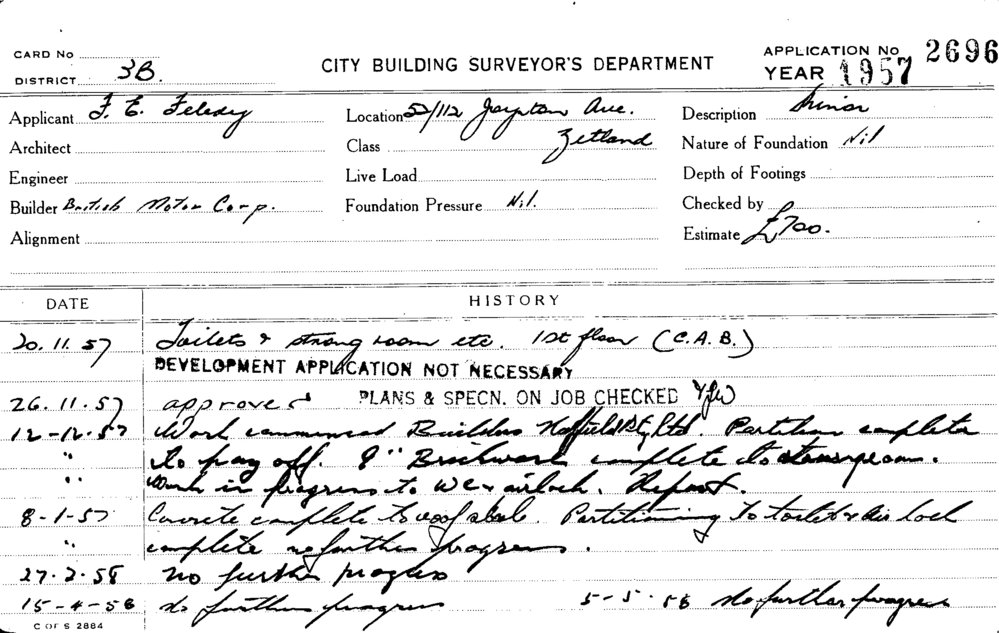 CARD No
DISTRICT 3B.
CITY BUILDING SURVEYOR'S DEPARTMENT
APPLICATION No 2696
YEAR 1957
Applicant F. E.
Location 52/112 Joynton Ave.
Zetland
Description Minor
Architect
Class
Nature of Foundation Nil
Engineer
Live Load
Depth of Footings
Builder British Motor Corp.
Foundation Pressure Nil.
Checked by
Alignment
Estimate £700.
DATE HISTORY
20.11.57 Toilets & strong room etc. 1st floor (C.A.B.)
DEVELOPMENT APPLICATION NOT NECESSARY
26.11.57 approved PLANS & SPECN. ON JOB CHECKED
12-12-57 Work commenced Builders Pty Ltd. Partition complete
" to off. 9" Brickwork complete to strongroom.
" Work in progress to WC & airlock. Report.
8-1-57 Concrete complete to roof slab. Partitioning to toilet & Air lock
" complete no further progress.
27.2.58 No further progress
15-4-58 No further progress 5-5-58 No further progress
C OF S 2884